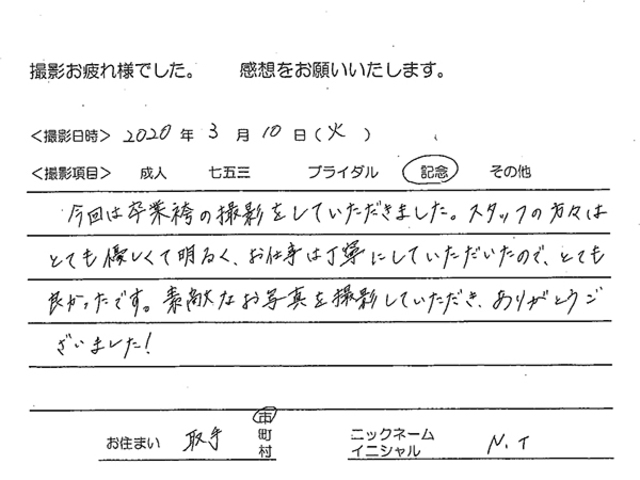 撮影お疲れ様でした。 感想をお願いいたします。
＜撮影日時＞ 2020 年 3 月 10 日（火）
＜撮影項目＞ 成人 七五三 ブライダル 記念 その他
今回は卒業袴の撮影をしていただきました。スタッフの方々は
とても優しくて明るく、お仕事は丁寧にしていただいたので、とても
良かったです。素敵なお写真を撮影していただき、ありがとうご
ざいました！
お住まい 取手 市町村 ニックネーム イニシャル N.T